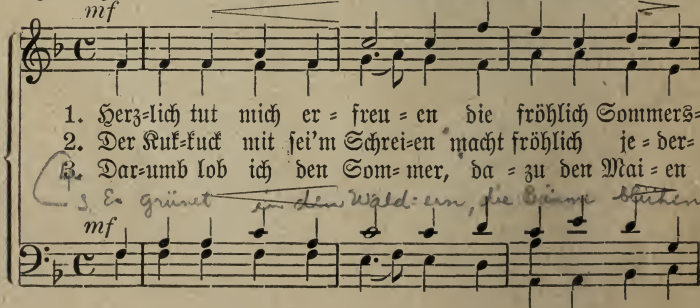 mf
1. Herz=lich tut mich er = freu = en die fröhlich Sommers=
2. Der Kuk=kuck mit sei'm Schrei=en macht fröhlich je = der-
3. Dar=umb lob ich den Som= mer, da = zu den Mai = en
3 Es grünet in den Wäld=ern, die Bäume blühen
mf